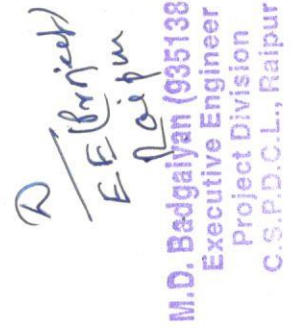 EE (Project)
Raipur
M.D. Badgaiyan (935138
Executive Engineer
Project Division
C.S.P.D.C.L., Raipur